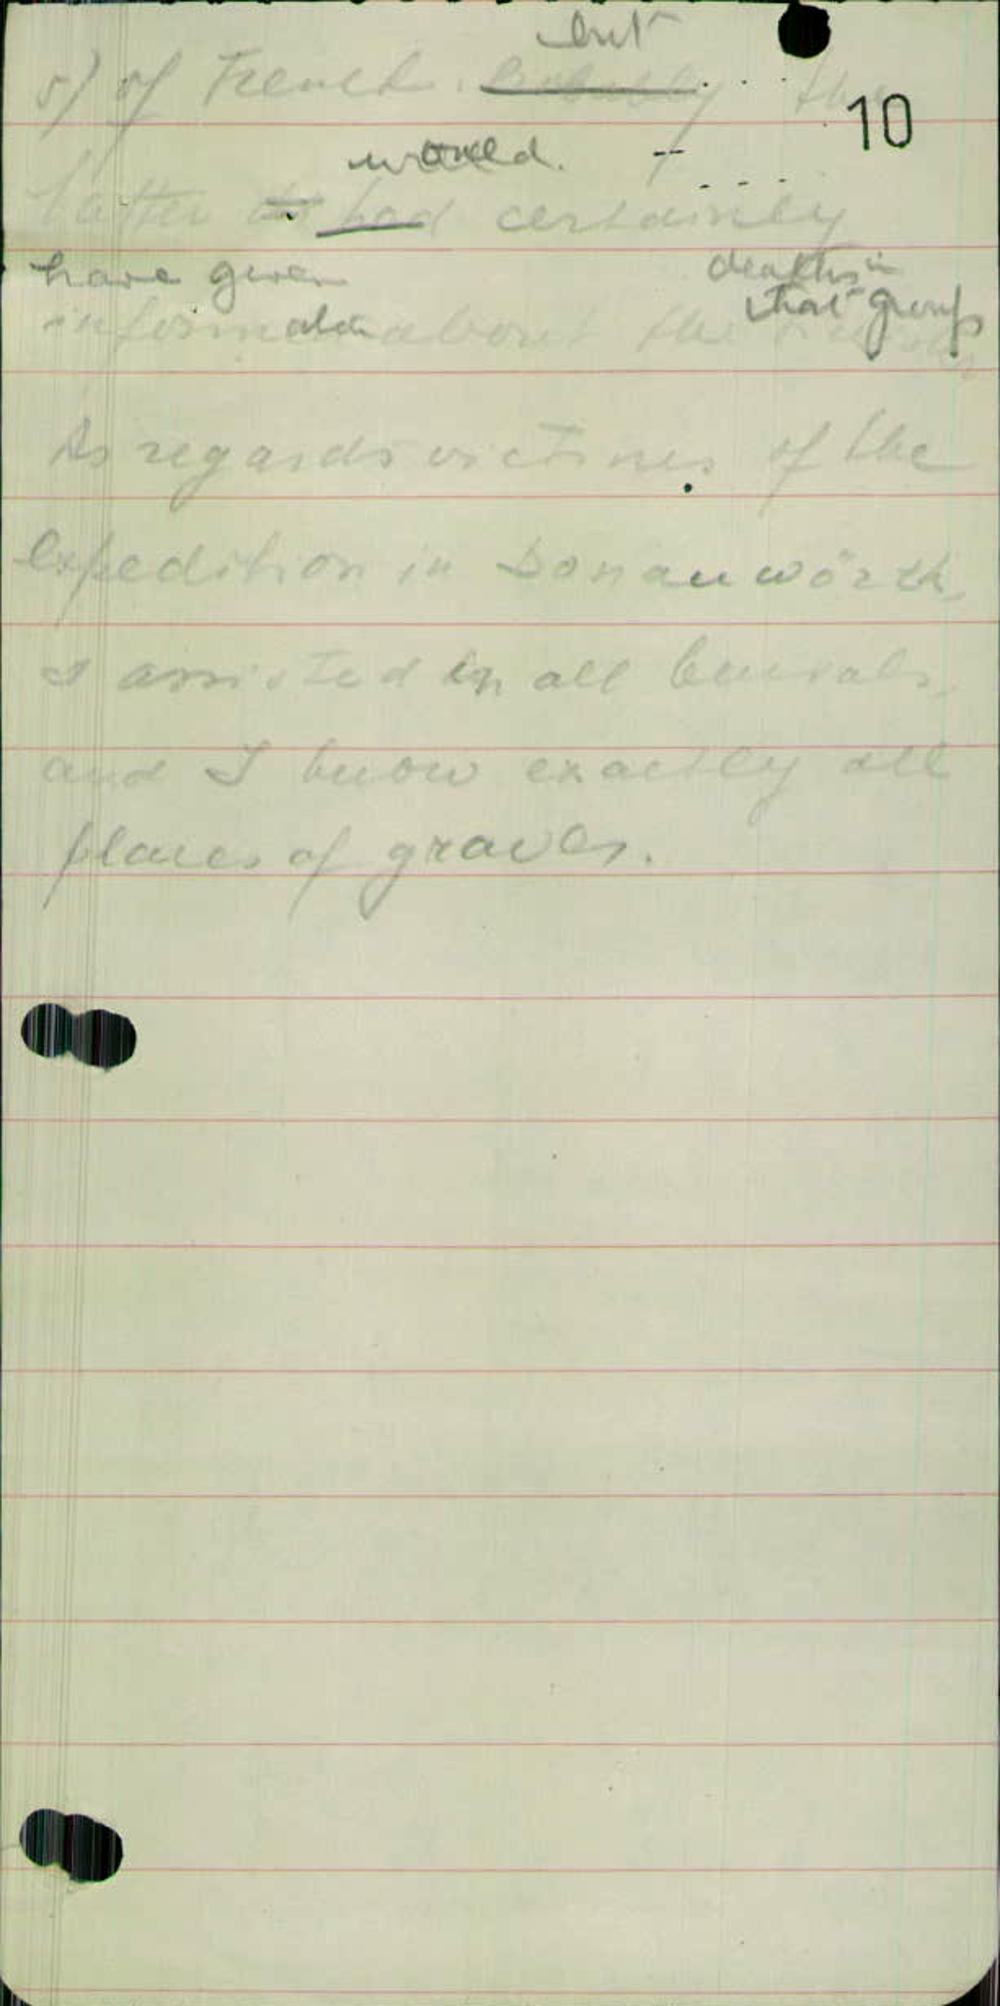 but
5) of French. Probably the
10
would.
latter had certainly
have given deaths in
that group
information about the
As regards victims of the
Expedition in Donauwörth,
I assisted in all burials,
and I know exactly all
places of graves.